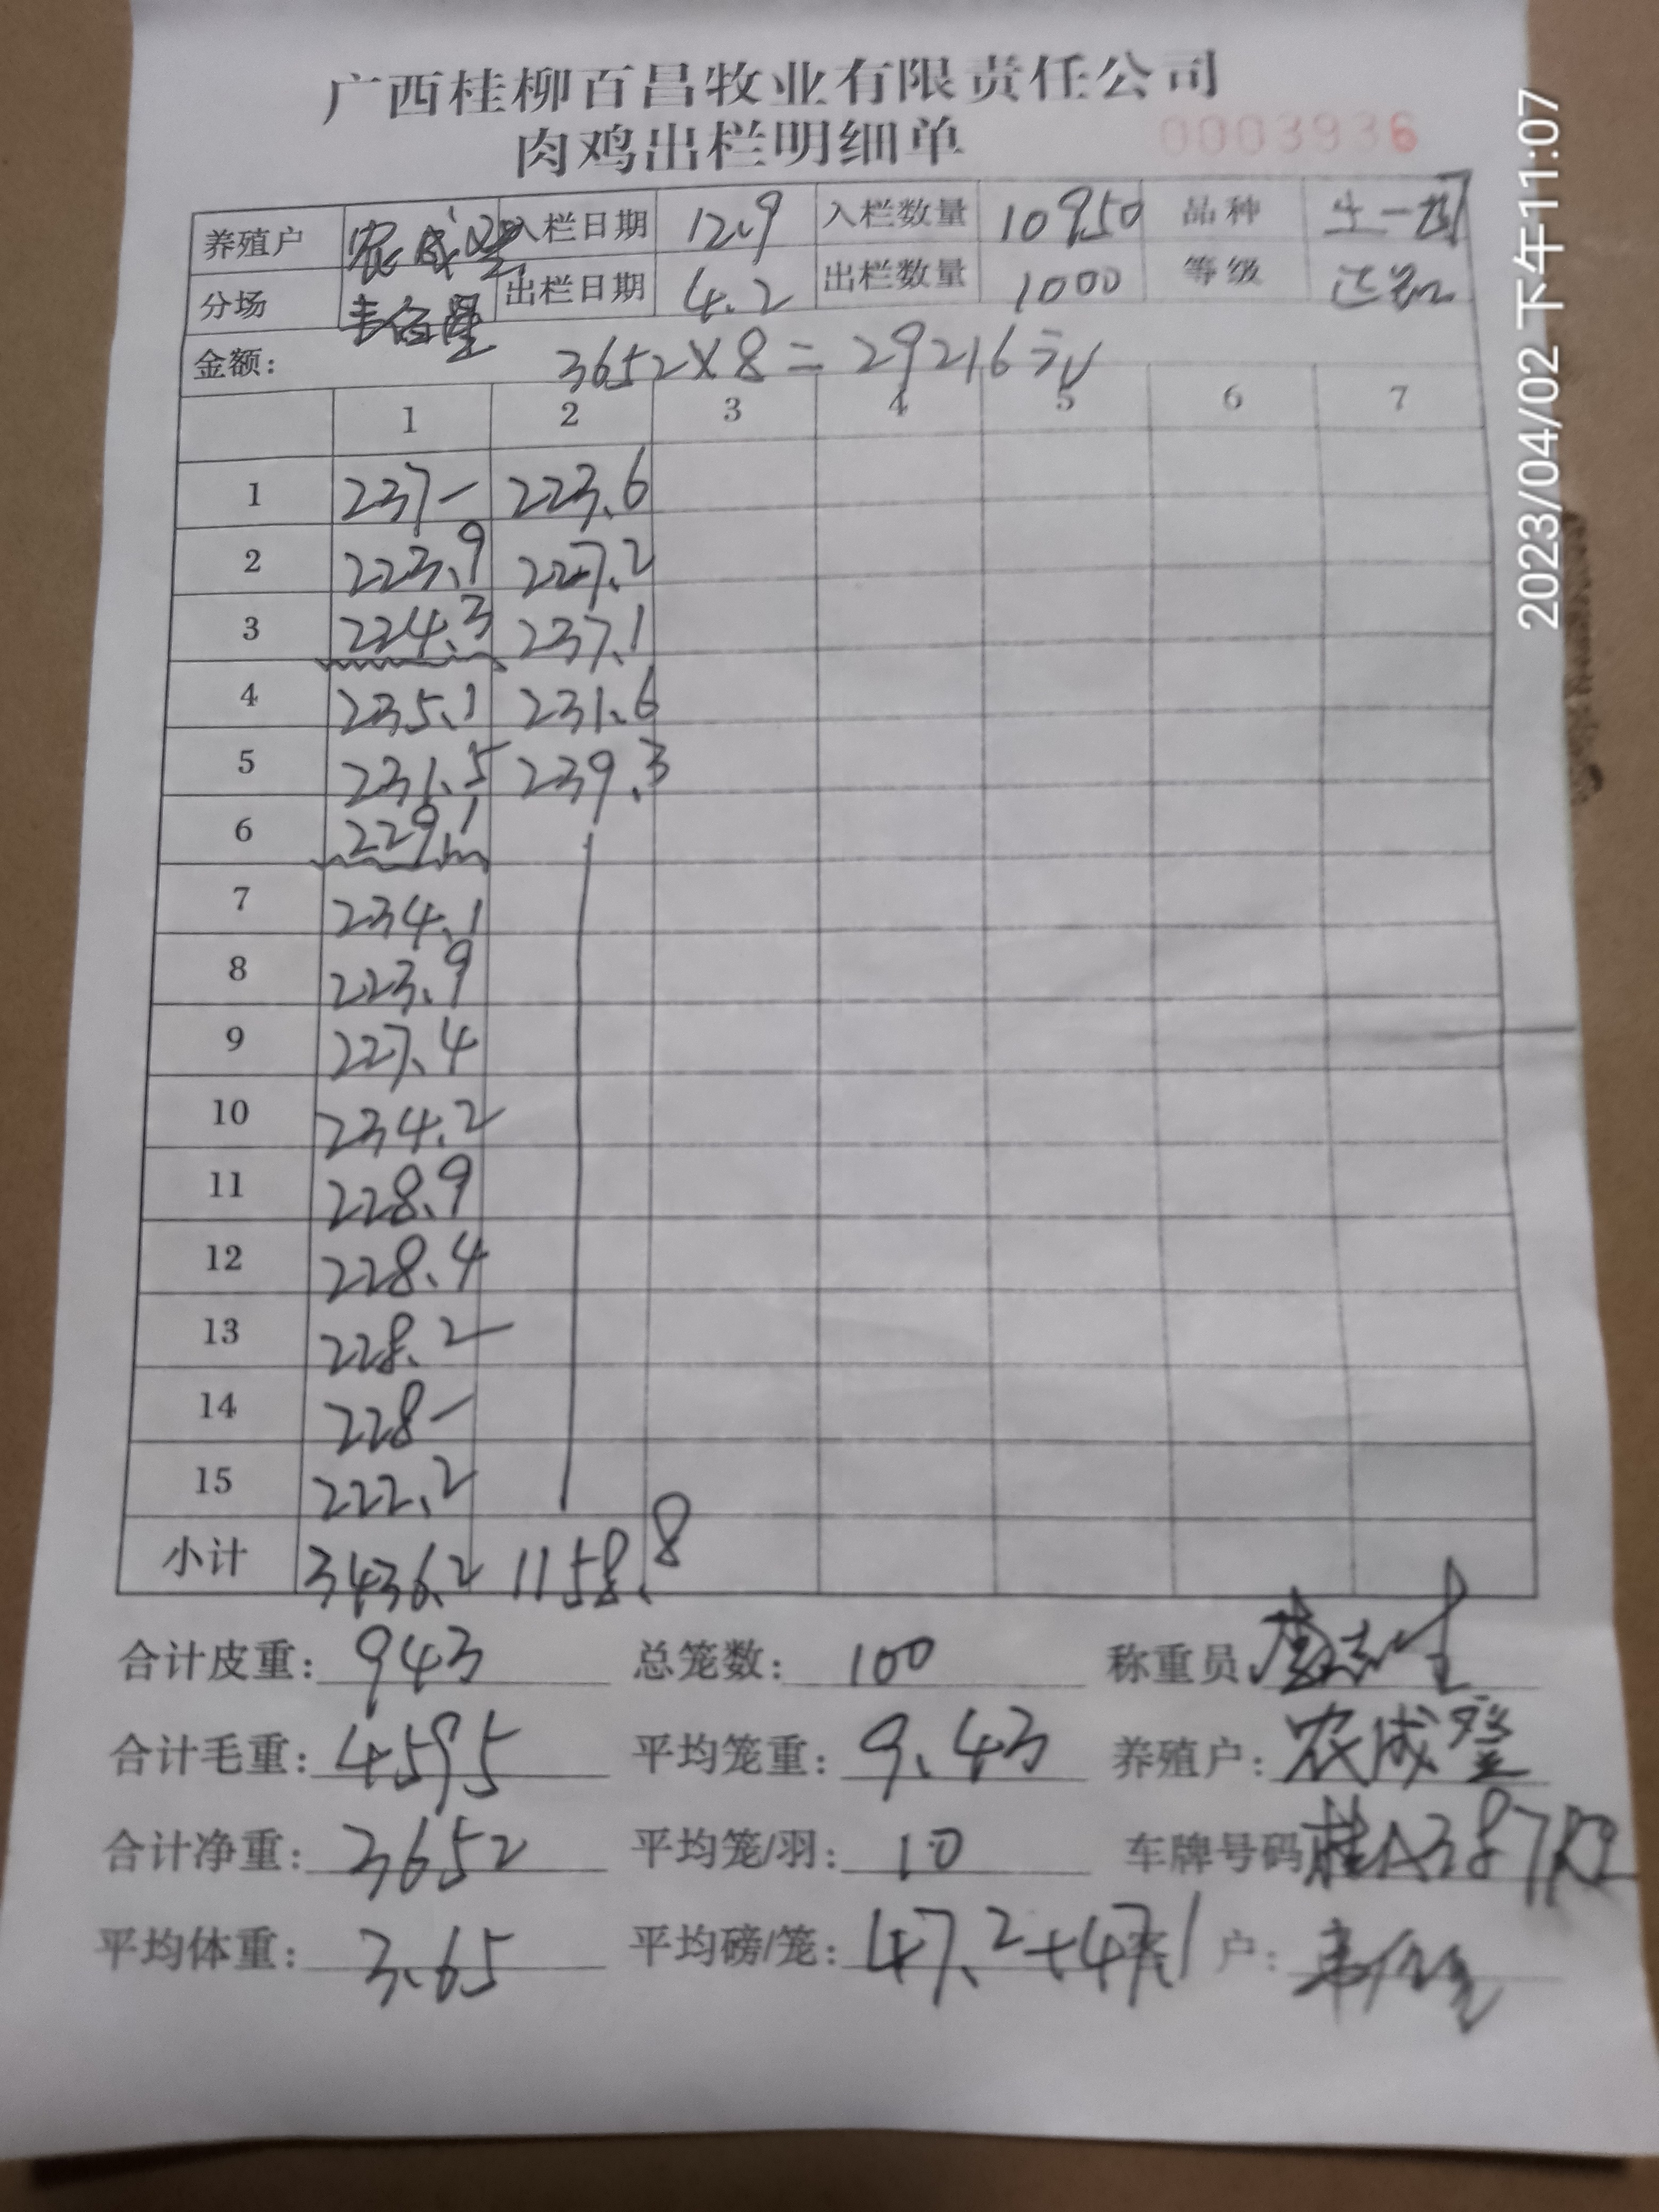 广西桂柳百昌牧业有限责任公司
肉鸡出栏明细单 0003936
养殖户 农成登 入栏日期 12.9 入栏数量 10950 品种
分场 出栏日期 4.2 出栏数量 1000 等级 正品
金额: 3652×8=29216元
1 2 3 4 5 6 7
1 237- 223.6
2 223.9 227.2
3 224.3 237.1
4 235.1 231.6
5 231.5 239.3
6 229.1
7 234.1
8 223.9
9 227.4
10 234.2
11 228.9
12 228.4
13 228.2
14 228-
15 222.2
小计 3436.2 1158.8
合计皮重: 943 总笼数: 100 称重员
合计毛重: 4595 平均笼重: 9.43 养殖户: 农成登
合计净重: 3652 平均笼/羽: 10 车牌号码
平均体重: 3.65 平均磅/笼: 47.2+47.1 户:
2023/04/02 下午11:07